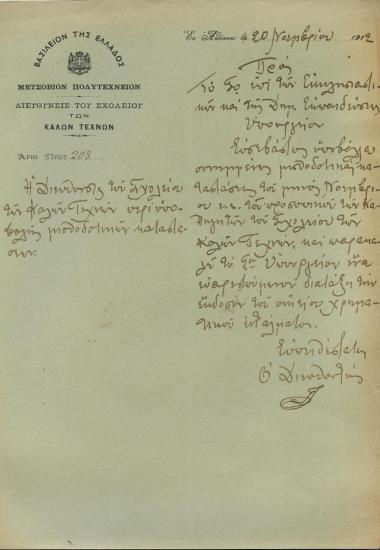 ΒΑΣΙΛΕΙΟΝ ΤΗΣ ΕΛΛΑΔΟΣ
ΜΕΤΣΟΒΙΟΝ ΠΟΛΥΤΕΧΝΕΙΟΝ
ΔΙΕΥΘΥΝΣΙΣ ΤΟΥ ΣΧΟΛΕΙΟΥ
ΤΩΝ
ΚΑΛΩΝ ΤΕΧΝΩΝ
Ἀριθ. Πρωτ. 208
Ἡ Διεύθυνσις τοῦ Σχολείου
τῶν Καλῶν Τεχνῶν περὶ ὑπο-
βολῆς μισθοδοτικῶν καταστά-
σεων.
Ἐν Ἀθήναις τῇ 20 Νοεμβρίου 1912
Πρὸς
Τὸ Σὸν ἐπὶ τῶν Ἐκκλησιαστι-
κῶν καὶ τῆς Δημ. Ἐκπαιδεύσεως
Ὑπουργεῖον
Εὐσεβάστως ὑποβάλλω
συνημμένως μισθοδοτικὴν κα-
τάστασιν τοῦ μηνὸς Νοεμβρί-
ου ἐ.ἔ. τοῦ προσωπικοῦ τῶν Κα-
θηγητῶν τοῦ Σχολείου τῶν
Καλῶν Τεχνῶν, καὶ παρακα-
λῶ τὸ Σὸν Ὑπουργεῖον ἵνα
εὐαρεστούμενον διατάξῃ τὴν
ἔκδοσιν τοῦ οἰκείου χρημα-
τικοῦ ἐντάλματος.
Εὐπειθέστατος
Ὁ Διευθυντής